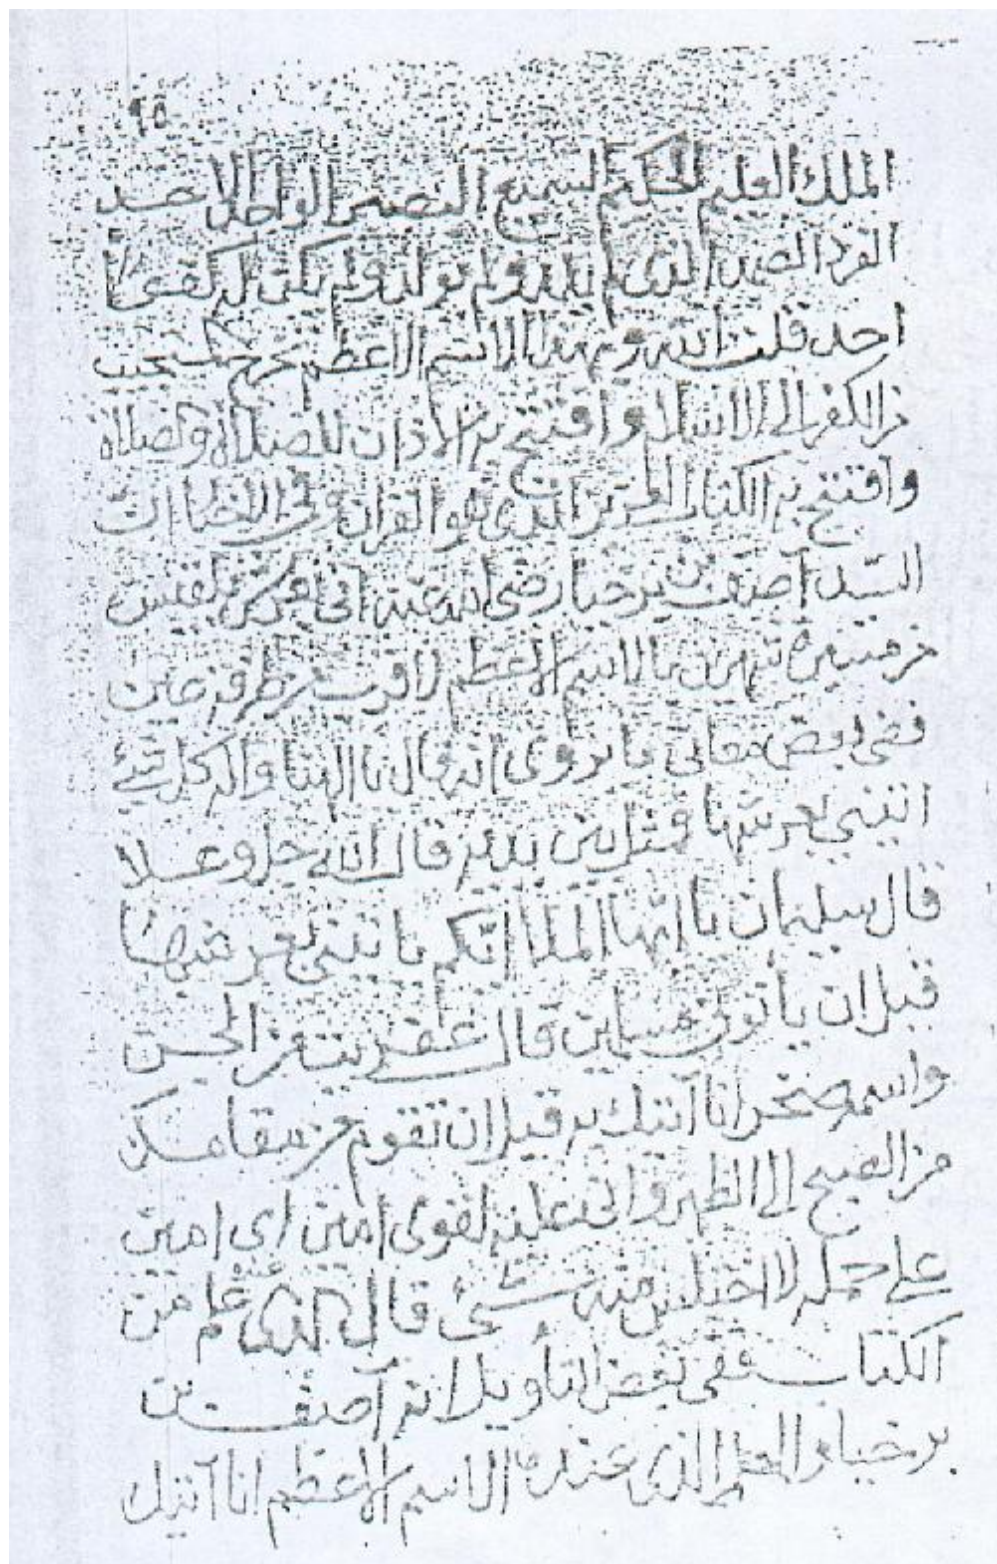 ٩٥
الملك العليم الحكيم السميع البصير الواحد الاحد
الفرد الصمد الذى لم يلد ولم يولد ولم يكن له كفوًا
احد قلت انته وبهذا الاسم الاعظم تخرج
من الكفر الى الاسلام وافتتح به الاذان للصلاة والصلاة
وافتتح به الكتاب العزيز الذى هو القران وفى الاخبار ان
السيد آصف بن برخيا رضى الله عنه اتى بعرش بلقيس
من مسيرة شهرين بالاسم الاعظم لاقرب من طرفة عين
ففى بعض معانى ما يروى انه قال يا الهنا واله كل شئ
ائتنى بعرشها فمثل بين يديه قال الله جل وعلا
قال سليمان يا ايها الملا ايّكم ياتينى بعرشها
قبل ان ياتونى مسلمين قال عفريت من الجن
واسمه صخر انا آتيك به قبل ان تقوم من مقامك
من الصبح الى الظهر وانى عليه لقوى امين اى امين
على حمله لا اختلس منه شئ قال الذى عنده علم من
الكتاب ففى بعض التاويل انه آصف بن
برخيا والعلم الذى عنده الاسم الاعظم انا آتيك